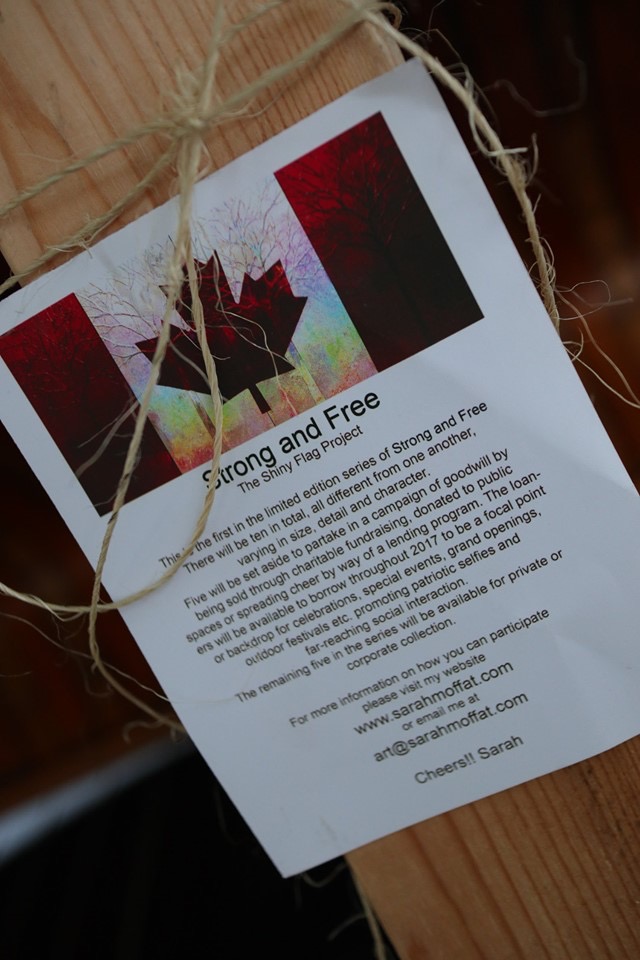 Strong and Free
The Shiny Flag Project
This is the first in the limited edition series of Strong and Free
There will be ten in total, all different from one another,
varying in size, detail and character.
Five will be set aside to partake in a campaign of goodwill by
being sold through charitable fundraising, donated to public
spaces or spreading cheer by way of a lending program. The loan-
ers will be available to borrow throughout 2017 to be a focal point
or backdrop for celebrations, special events, grand openings,
outdoor festivals etc. promoting patriotic selfies and
far-reaching social interaction.
The remaining five in the series will be available for private or
corporate collection.
For more information on how you can participate
please visit my website
www.sarahmoffat.com
or email me at
art@sarahmoffat.com
Cheers!! Sarah